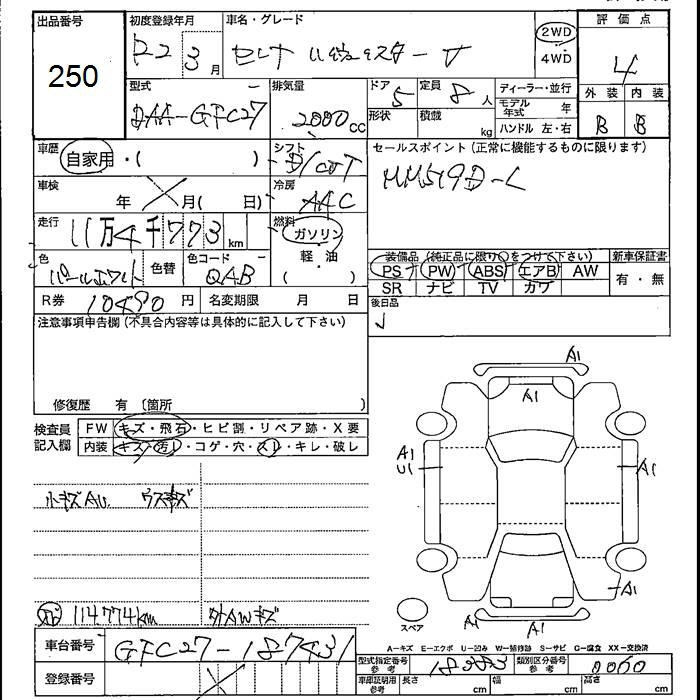 出品番号 250
初度登録年月 R2 3月
車名・グレード セレナ ハイウェイスター V
2WD
4WD
評価点 4
外装 B 内装 B
型式 DAA-GFC27
排気量 2000cc
ドア 5
定員 8人
形状
積載 kg
ディーラー・並行
モデル年式 年
ハンドル 左・右
車歴 自家用・( )
シフト D/CVT
セールスポイント (正常に機能するものに限ります)
MM519D-L
車検 年 月( 日)
冷房 AAC
走行 11万4千773km
燃料 ガソリン
軽・油
( )
色 パールホワイト
色替
色コード QAB
装備品 (純正品に限り○をつけて下さい)
新車保証書
PS PW ABS エアB AW
有・無
SR ナビ TV カワ
R券 10490円
名変期限 月 日
後日品
注意事項申告欄 (不具合内容等は具体的に記入して下さい)
修復歴 有 〔箇所 )
検査員記入欄
FW キズ・飛石・ヒビ割・リペア跡・X要
内装 キズ・汚レ・コゲ・穴・スレ・キレ・破レ
小キズAU ウスキズ
114.774km 外AWキズ
A1
A1
A1
U1
A1
A1
A1
A1
スペア
A-キズ E-エクボ U-凹み W-補修跡 S-サビ C-腐食 XX-交換済
車台番号 GFC27-187431
登録番号
型式指定番号 参考 18383
類別区分番号 参考 0060
車庫証明用 参考 長さ cm 幅 cm 高さ cm